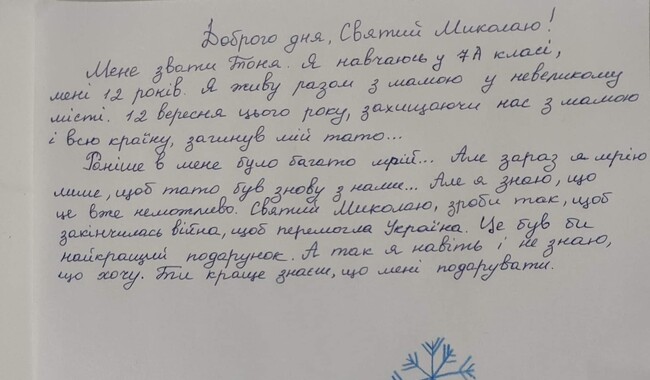 Доброго дня, Святий Миколаю!
Мене звати Тоня. Я навчаюсь у 7А класі,
мені 12 років. Я живу разом з мамою у невеликому
місті. 12 вересня цього року, захищаючи нас з мамою
і всю країну, загинув мій тато...
Раніше в мене було багато мрій... Але зараз я мрію
лише, щоб тато був знову з нами... Але я знаю, що
це вже неможливо. Святий Миколаю, зроби так, щоб
закінчилась війна, щоб перемогла Україна. Це був би
найкращий подарунок. А так я навіть і не знаю,
що хочу. Ти краще знаєш, що мені подарувати.